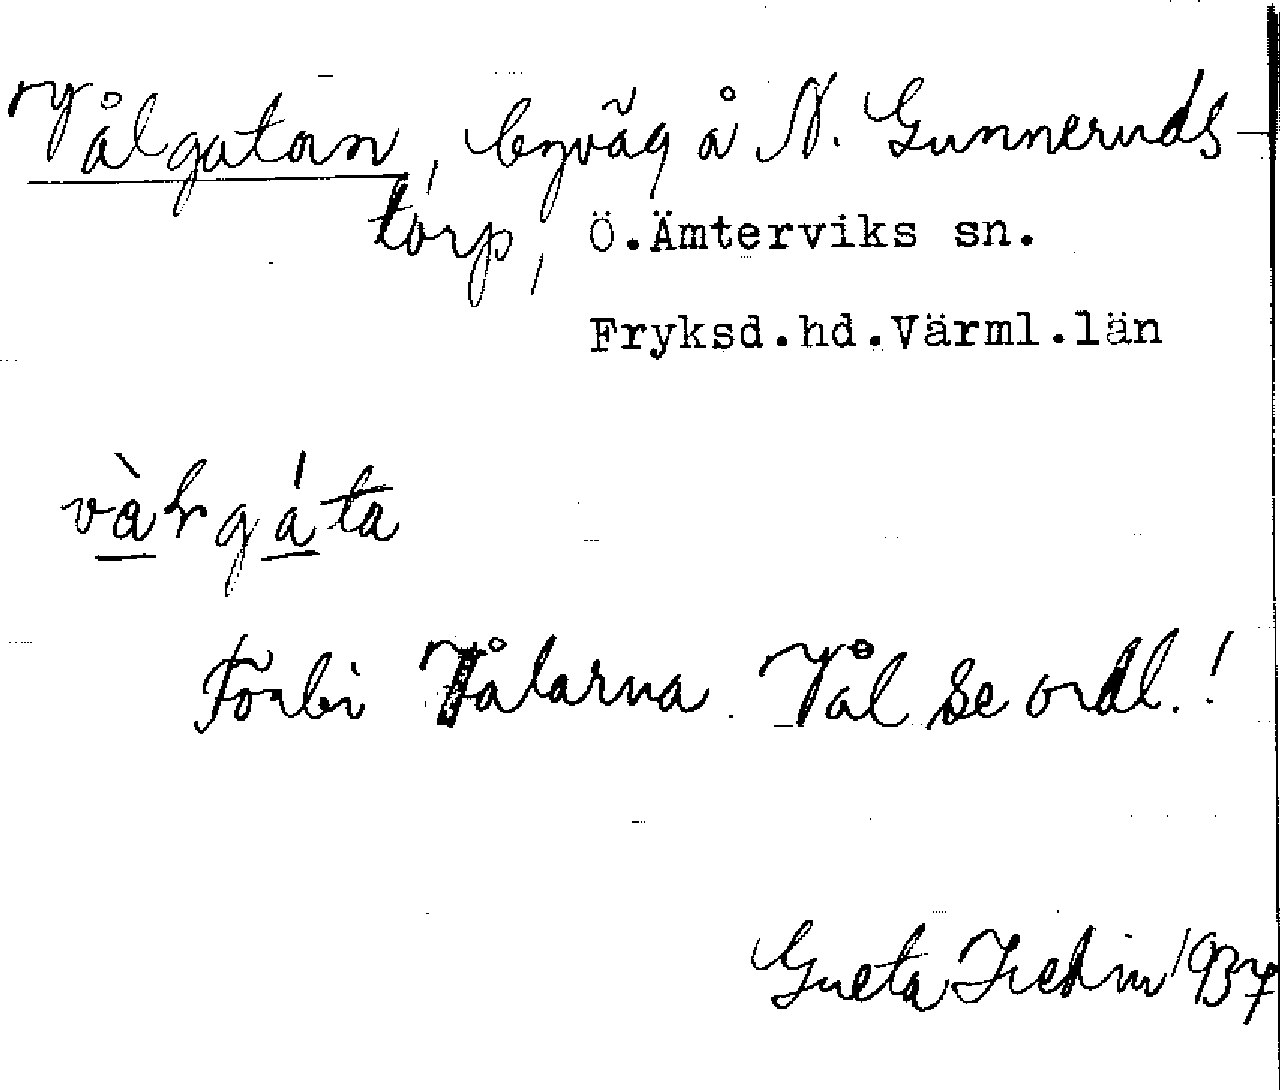 Vålgatan, byväg å N. Gunneruds-
torp, Ö.Ämterviks sn.
Fryksd.hd.Värml.län
Förbi Vålarna. Vål se ordl.!
Greta Hedin 1937